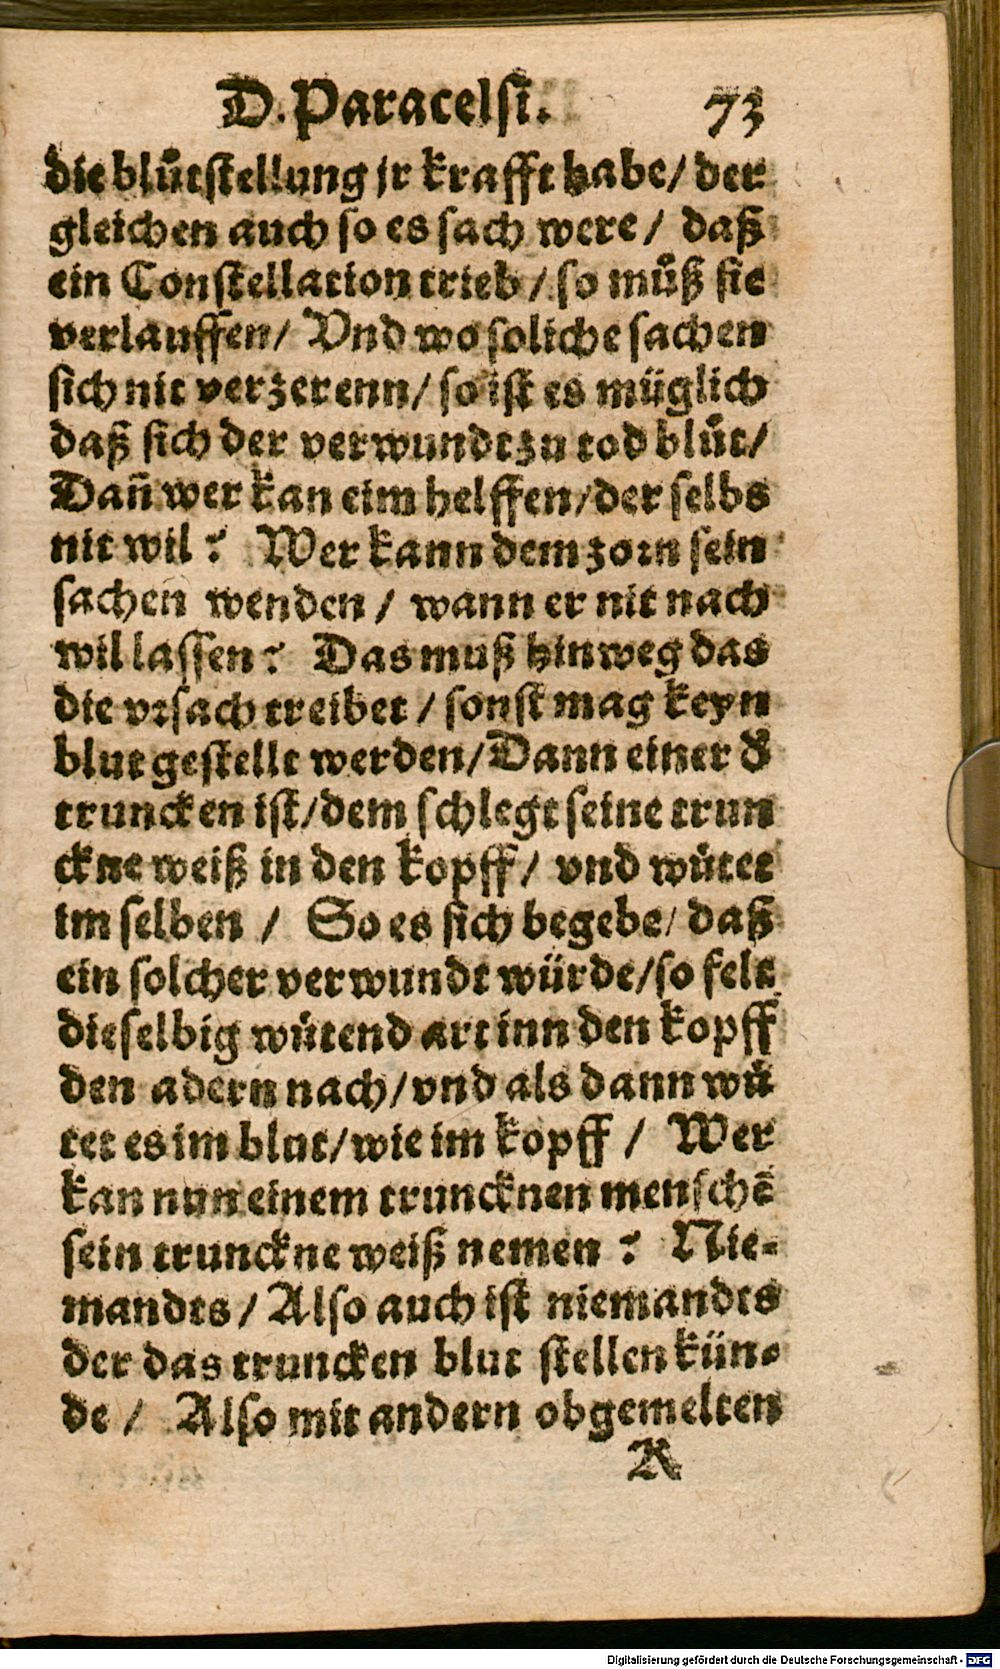 D. Paracelsi. 73
die blůtstellung jr krafft habe/ der
gleichen auch so es sach were/ daß
ein Constellation trieb/ so můß sie
verlauffen/ Vnd wo soliche sachen
sich nit verzerenn/ so ist es müglich
daß sich der verwundt zu tod blůt/
Dañ wer kan eim helffen/ der selbs
nit wil? Wer kann dem zorn sein
sachen wenden/ wann er nit nach
wil lassen? Das muß hinweg das
die vrsach treibet/ sonst mag keyn
blut gestellt werden/ Dann einer d͛
truncken ist/ dem schlegt seine trun
ckne weiß in den kopff/ vnd wütet
im selben/ So es sich begebe/ daß
ein solcher verwundt würde/ so felt
dieselbig wütend art inn den kopff
den adern nach/ vnd als dann wü
tet es im blut/ wie im kopff/ Wer
kan nun einem truncknen menschē
sein trunckne weiß nemen? Nie-
mandts/ Also auch ist niemandts
der das truncken blut stellen kün-
de/ Also mit andern obgemelten
K
Digitalisierung gefördert durch die Deutsche Forschungsgemeinschaft - DFG